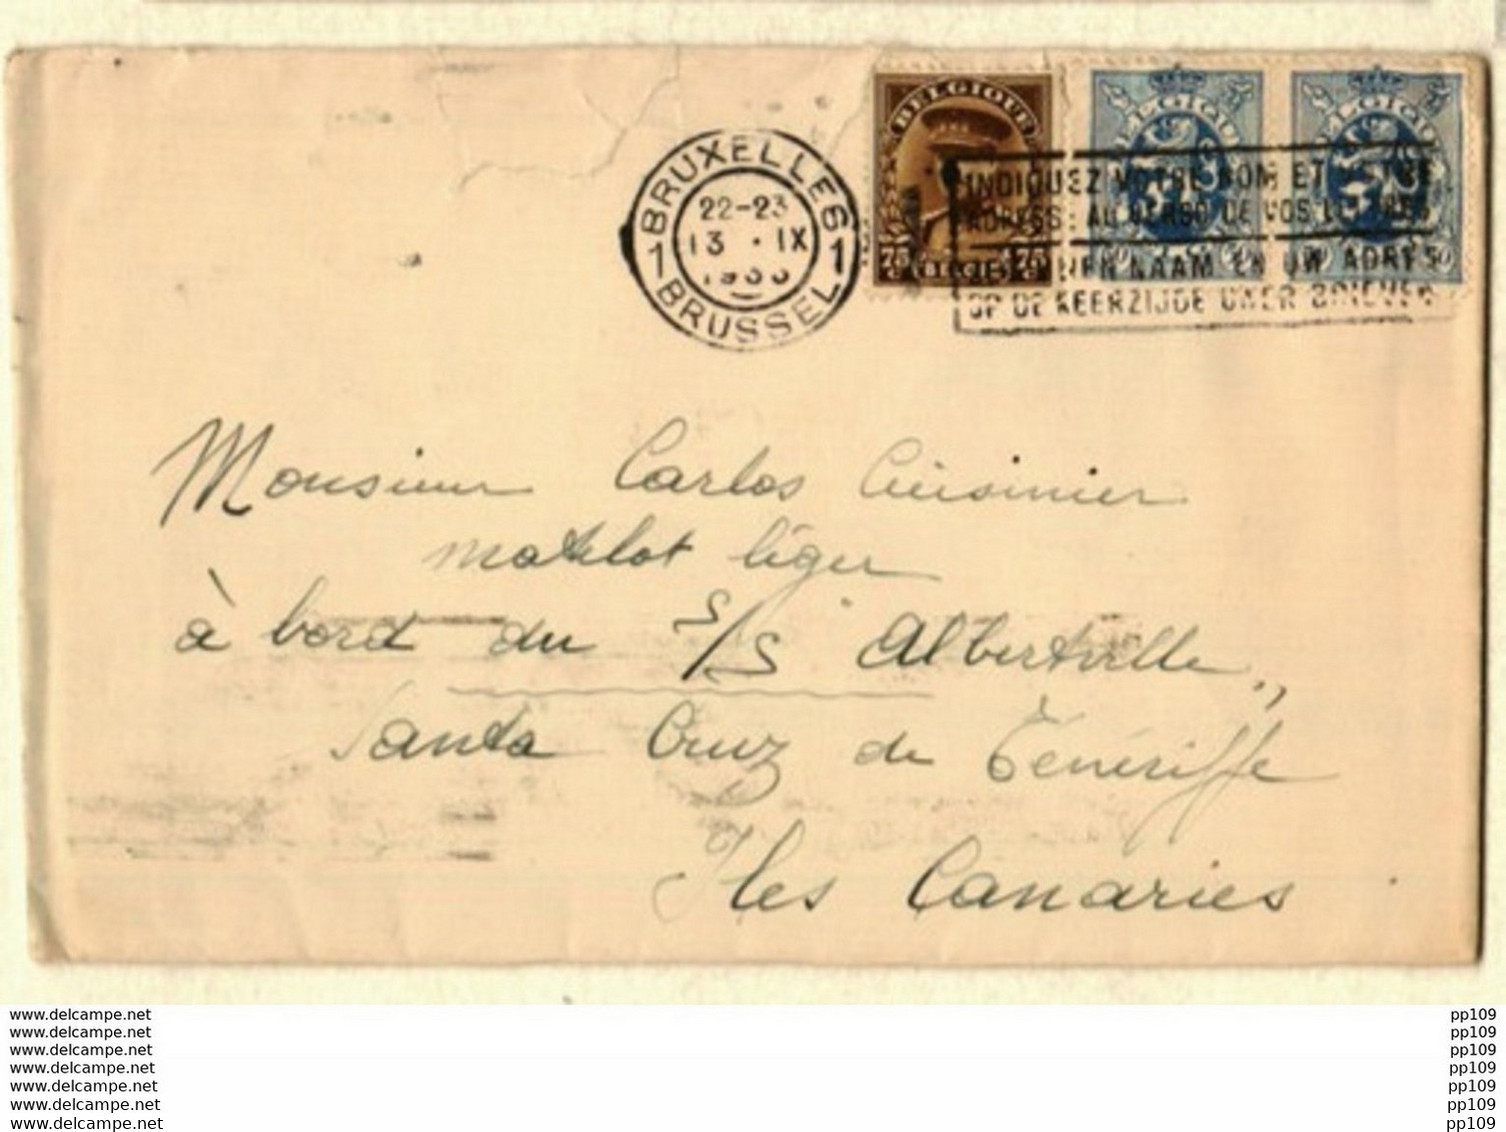 BRUXELLES
22-23
13 · IX
1 1
BRUSSEL
BELGIQUE
75 75
BELGIE
BELGIQUE
BELGIQUE
INDIQUEZ VOTRE NOM ET VOTRE
ADRESSE AU VERSO DE VOS LETTRES
NAAM EN UW ADRES
OP DE KEERZIJDE UWER BRIEVEN
Monsieur Carlos Cuisinier
matelot léger
à bord du S/S Albertville,,
Santa Cruz de Ténériffe
Iles Canaries
www.delcampe.net pp109
www.delcampe.net pp109
www.delcampe.net pp109
www.delcampe.net pp109
www.delcampe.net pp109
www.delcampe.net pp109
www.delcampe.net pp109